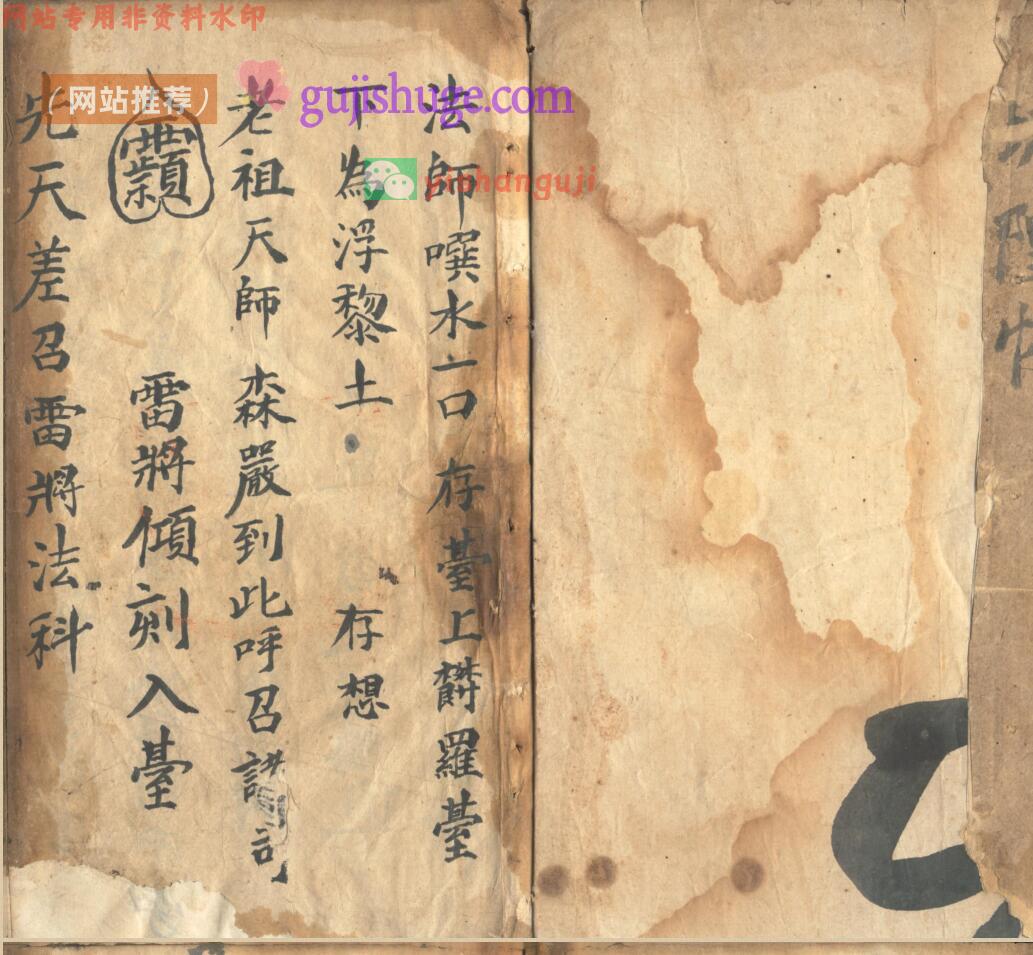 网站专用非资料水印
(网站推荐)
gujishuge.com
yiphanguji
法師噀水一口 存臺上欝羅臺
下為浮黎土 存想
老祖天師 森嚴到此呼召諸司
雷將傾刻入臺
先天差召雷將法科